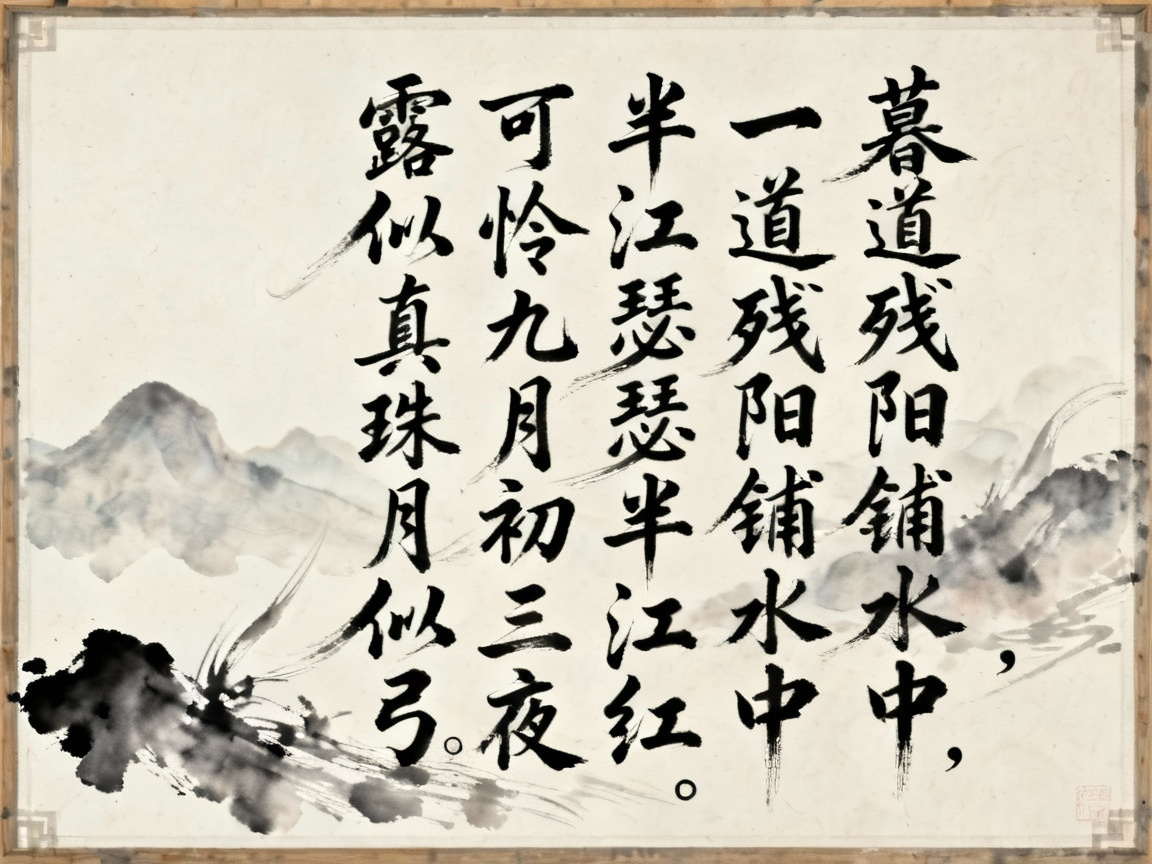 暮道残阳铺水中，，
一道残阳铺水中
半江瑟瑟半江红。
可怜九月初三夜
露似真珠月似弓。